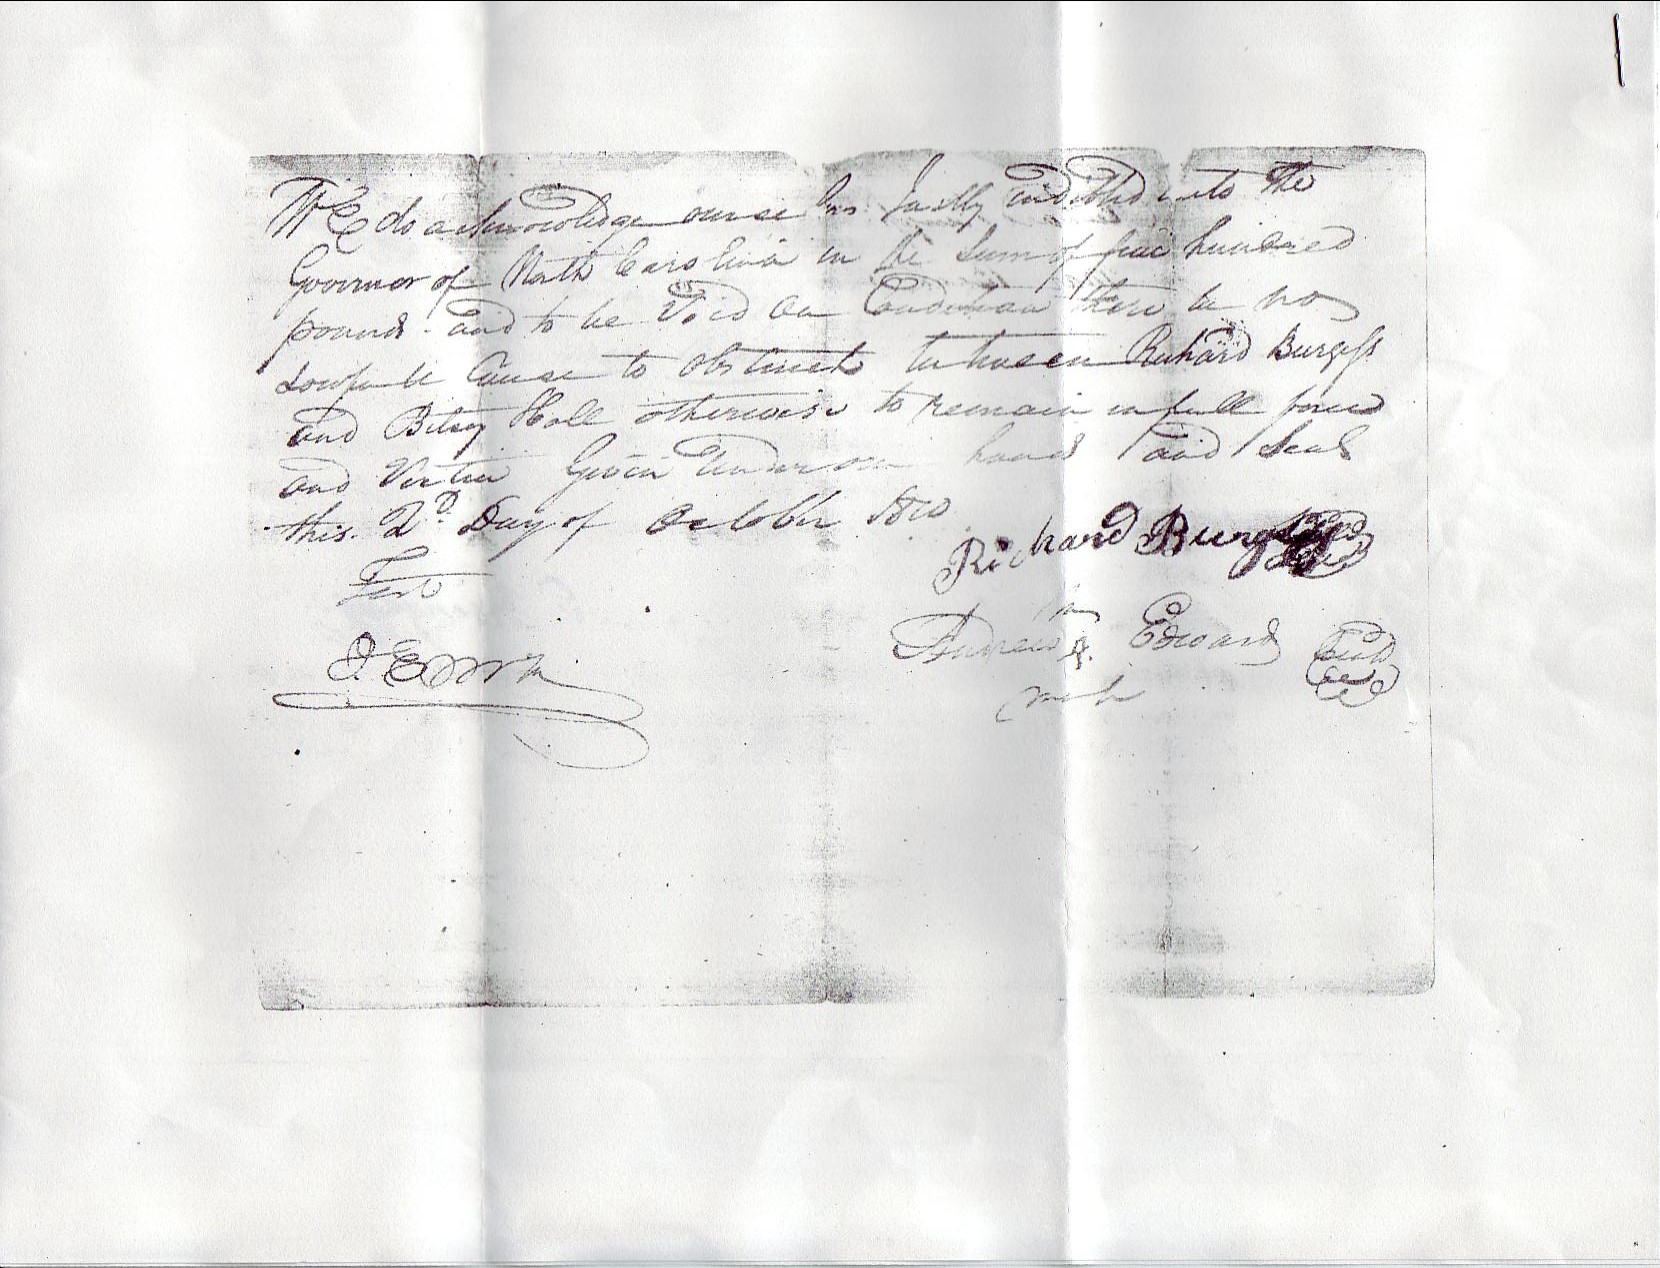 WE do acknowledge ourselves Justly indebted unto the
Governor of North Carolina in the Sum of five hundred
pounds and to be Void on Condition there be no
Lowfull Cause to Obstruct between Richard Burgess
and Betsey Hall otherwise to remain in full force
and Virtue Given Under our hands and Seals
this 2D. Day of October 1810
Test
Richard Burgess Seal
his
Andrew A. Edward Seal
mark